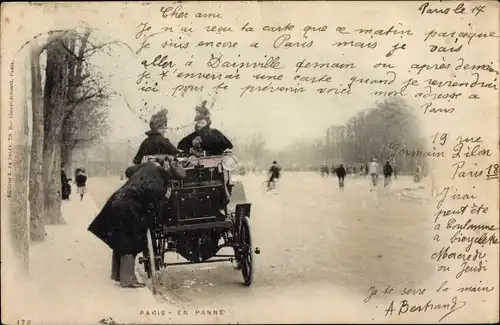 Paris le 14
Cher ami
Je n'ai reçu ta carte que ce matin parceque
je suis encore a Paris mais je vais
aller à Dainville demain ou après demain
Je t'enverrai une carte quand je reviendrai
ici pour te prévenir voici mon adresse a
Paris
19 rue
Germain Pilon
Paris 18
J'irai
peut être
à
a bicyclette
Mercredi
ou Jeudi
Je te serre la main
A Bertrand
PARIS - EN PANNE